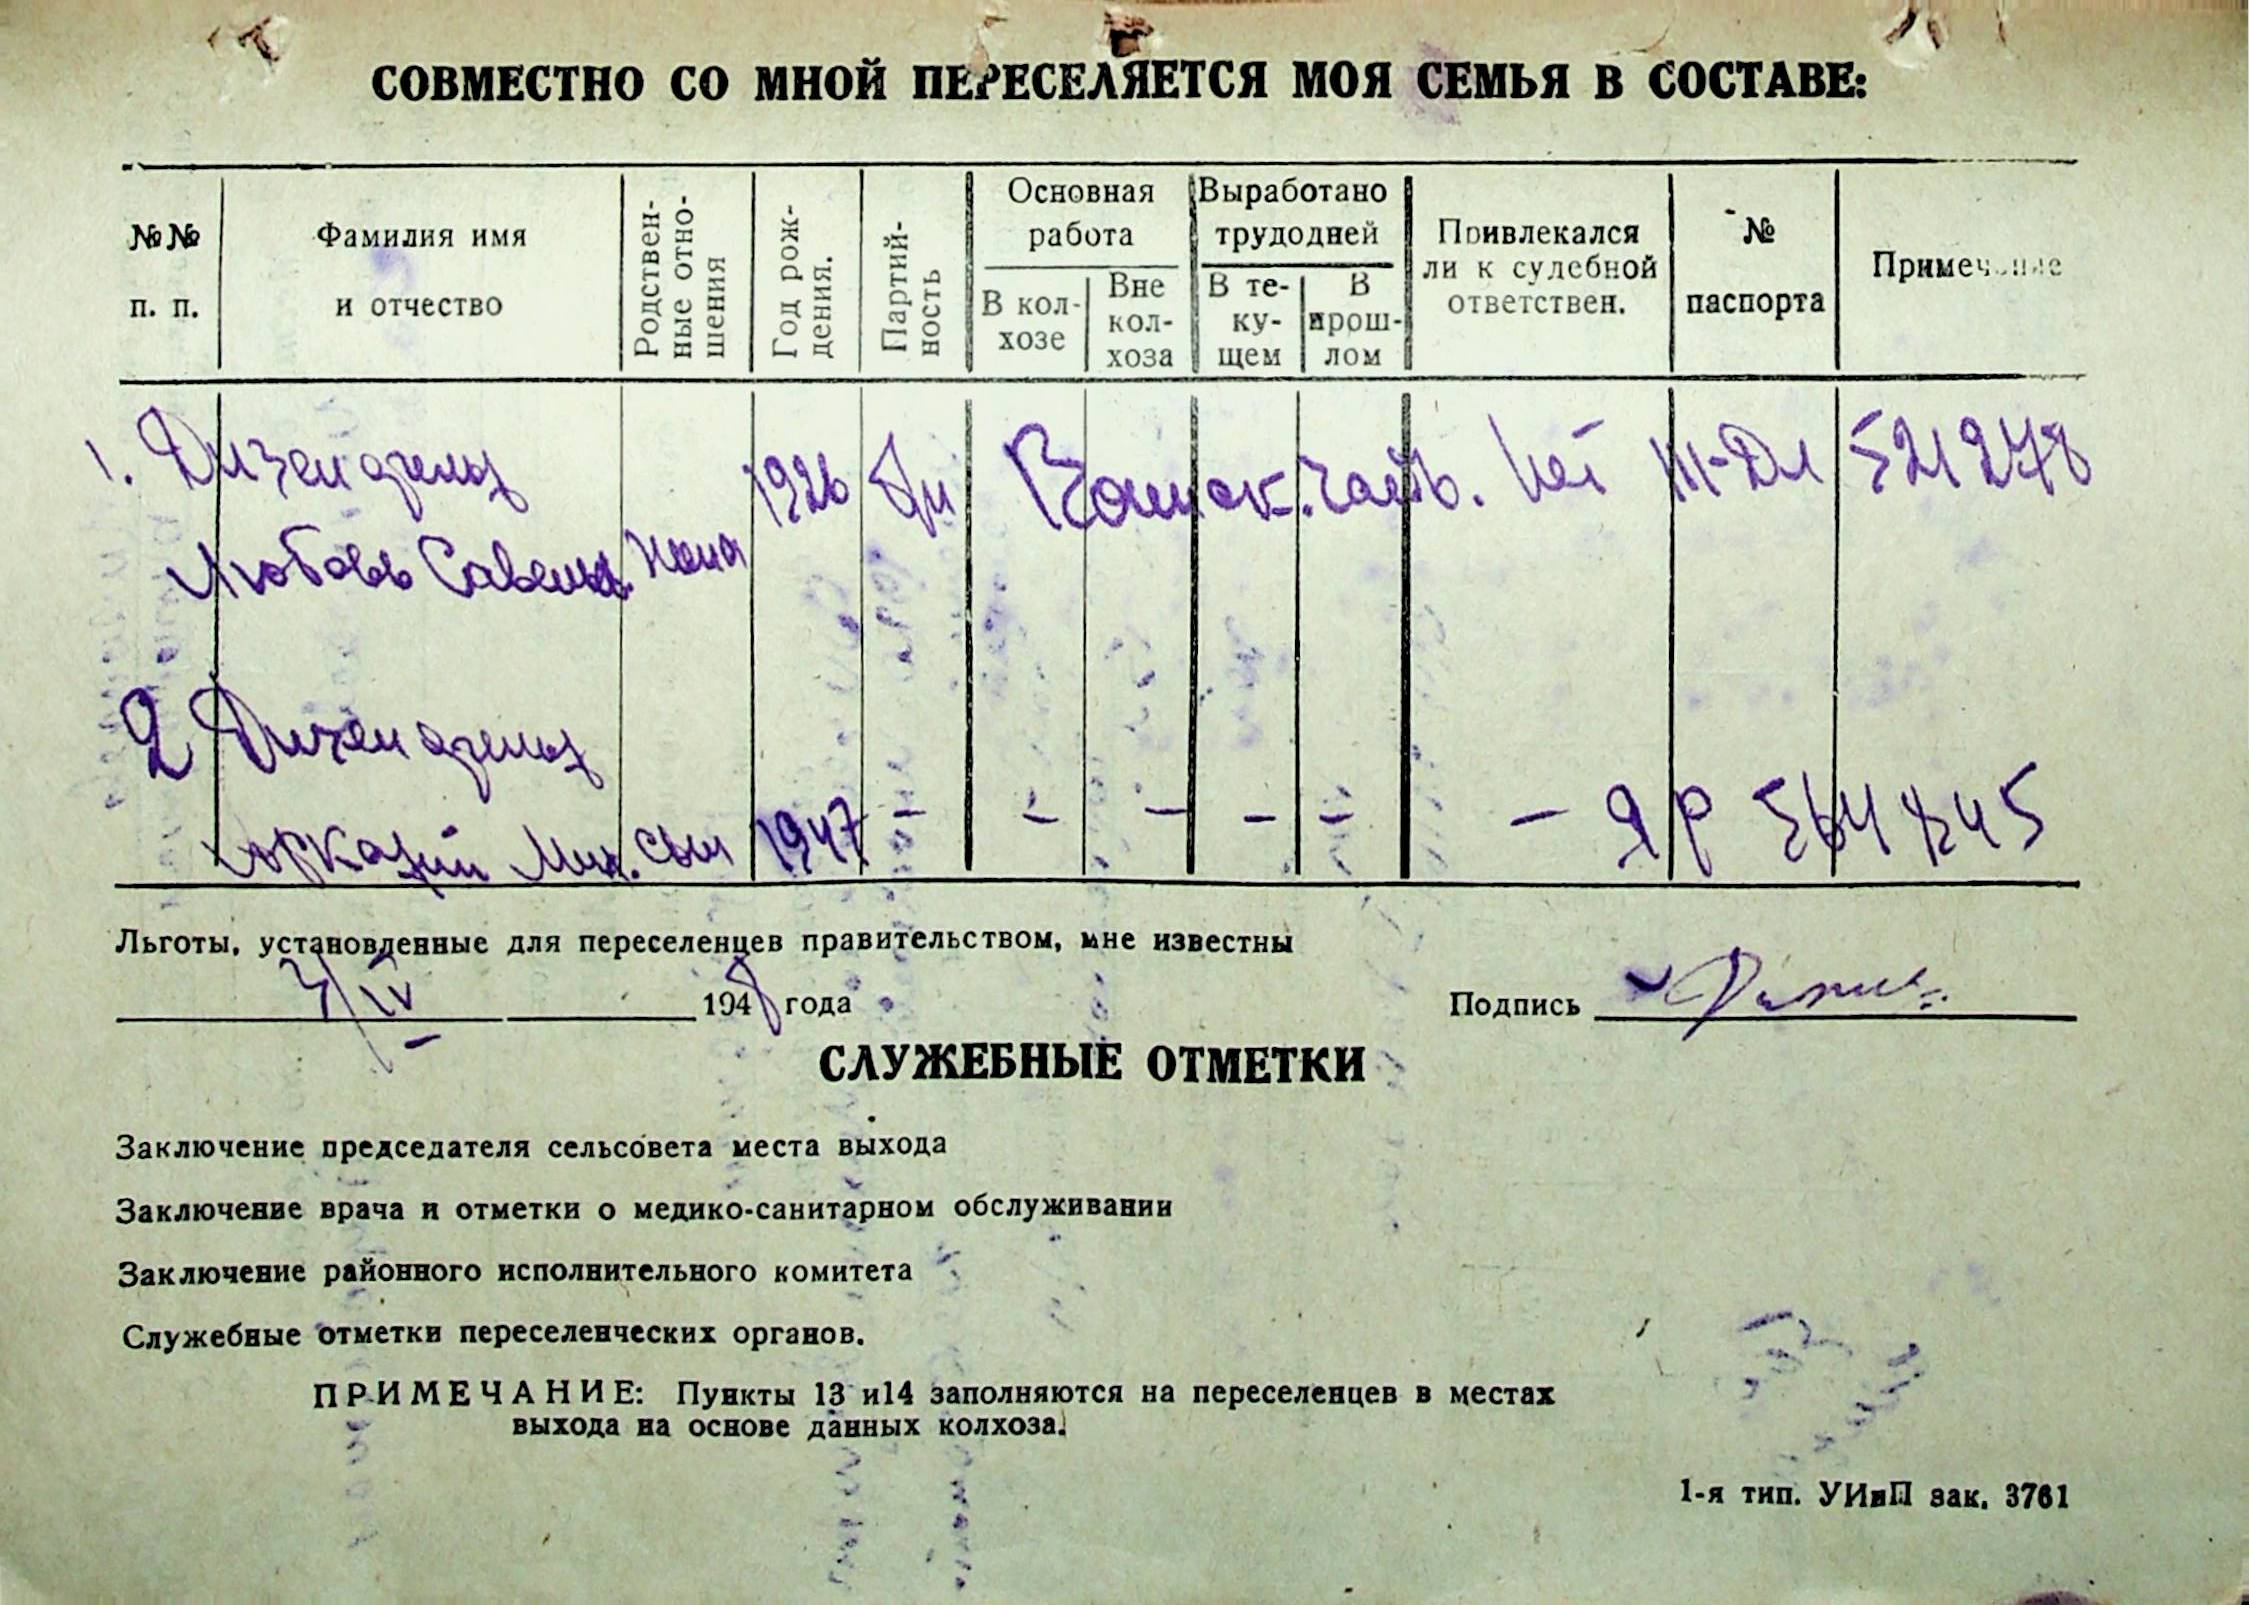 СОВМЕСТНО СО МНОЙ ПЕРЕСЕЛЯЕТСЯ МОЯ СЕМЬЯ В СОСТАВЕ:
№№ п. п.
Фамилия имя и отчество
Родствен-ные отно-шения
Год рож-дения.
Партий-ность
Основная работа
В кол-хозе
Вне кол-хоза
Выработано трудодней
В те-ку-щем
В прош-лом
Привлекался ли к судебной ответствен.
№ паспорта
Примечание
1. Дизендруз 1926 нет III-ДЛ 521278
Любовь Савель. жена
2 Дизендруз
Аркадий Мих. сын 1947 - - - - - - ЯР 564845
Льготы, установленные для переселенцев правительством, мне известны
3/IV 1948 года Подпись
СЛУЖЕБНЫЕ ОТМЕТКИ
Заключение председателя сельсовета места выхода
Заключение врача и отметки о медико-санитарном обслуживании
Заключение районного исполнительного комитета
Служебные отметки переселенческих органов.
ПРИМЕЧАНИЕ: Пункты 13 и14 заполняются на переселенцев в местах
выхода на основе данных колхоза.
1-я тип. УИиП зак. 3761